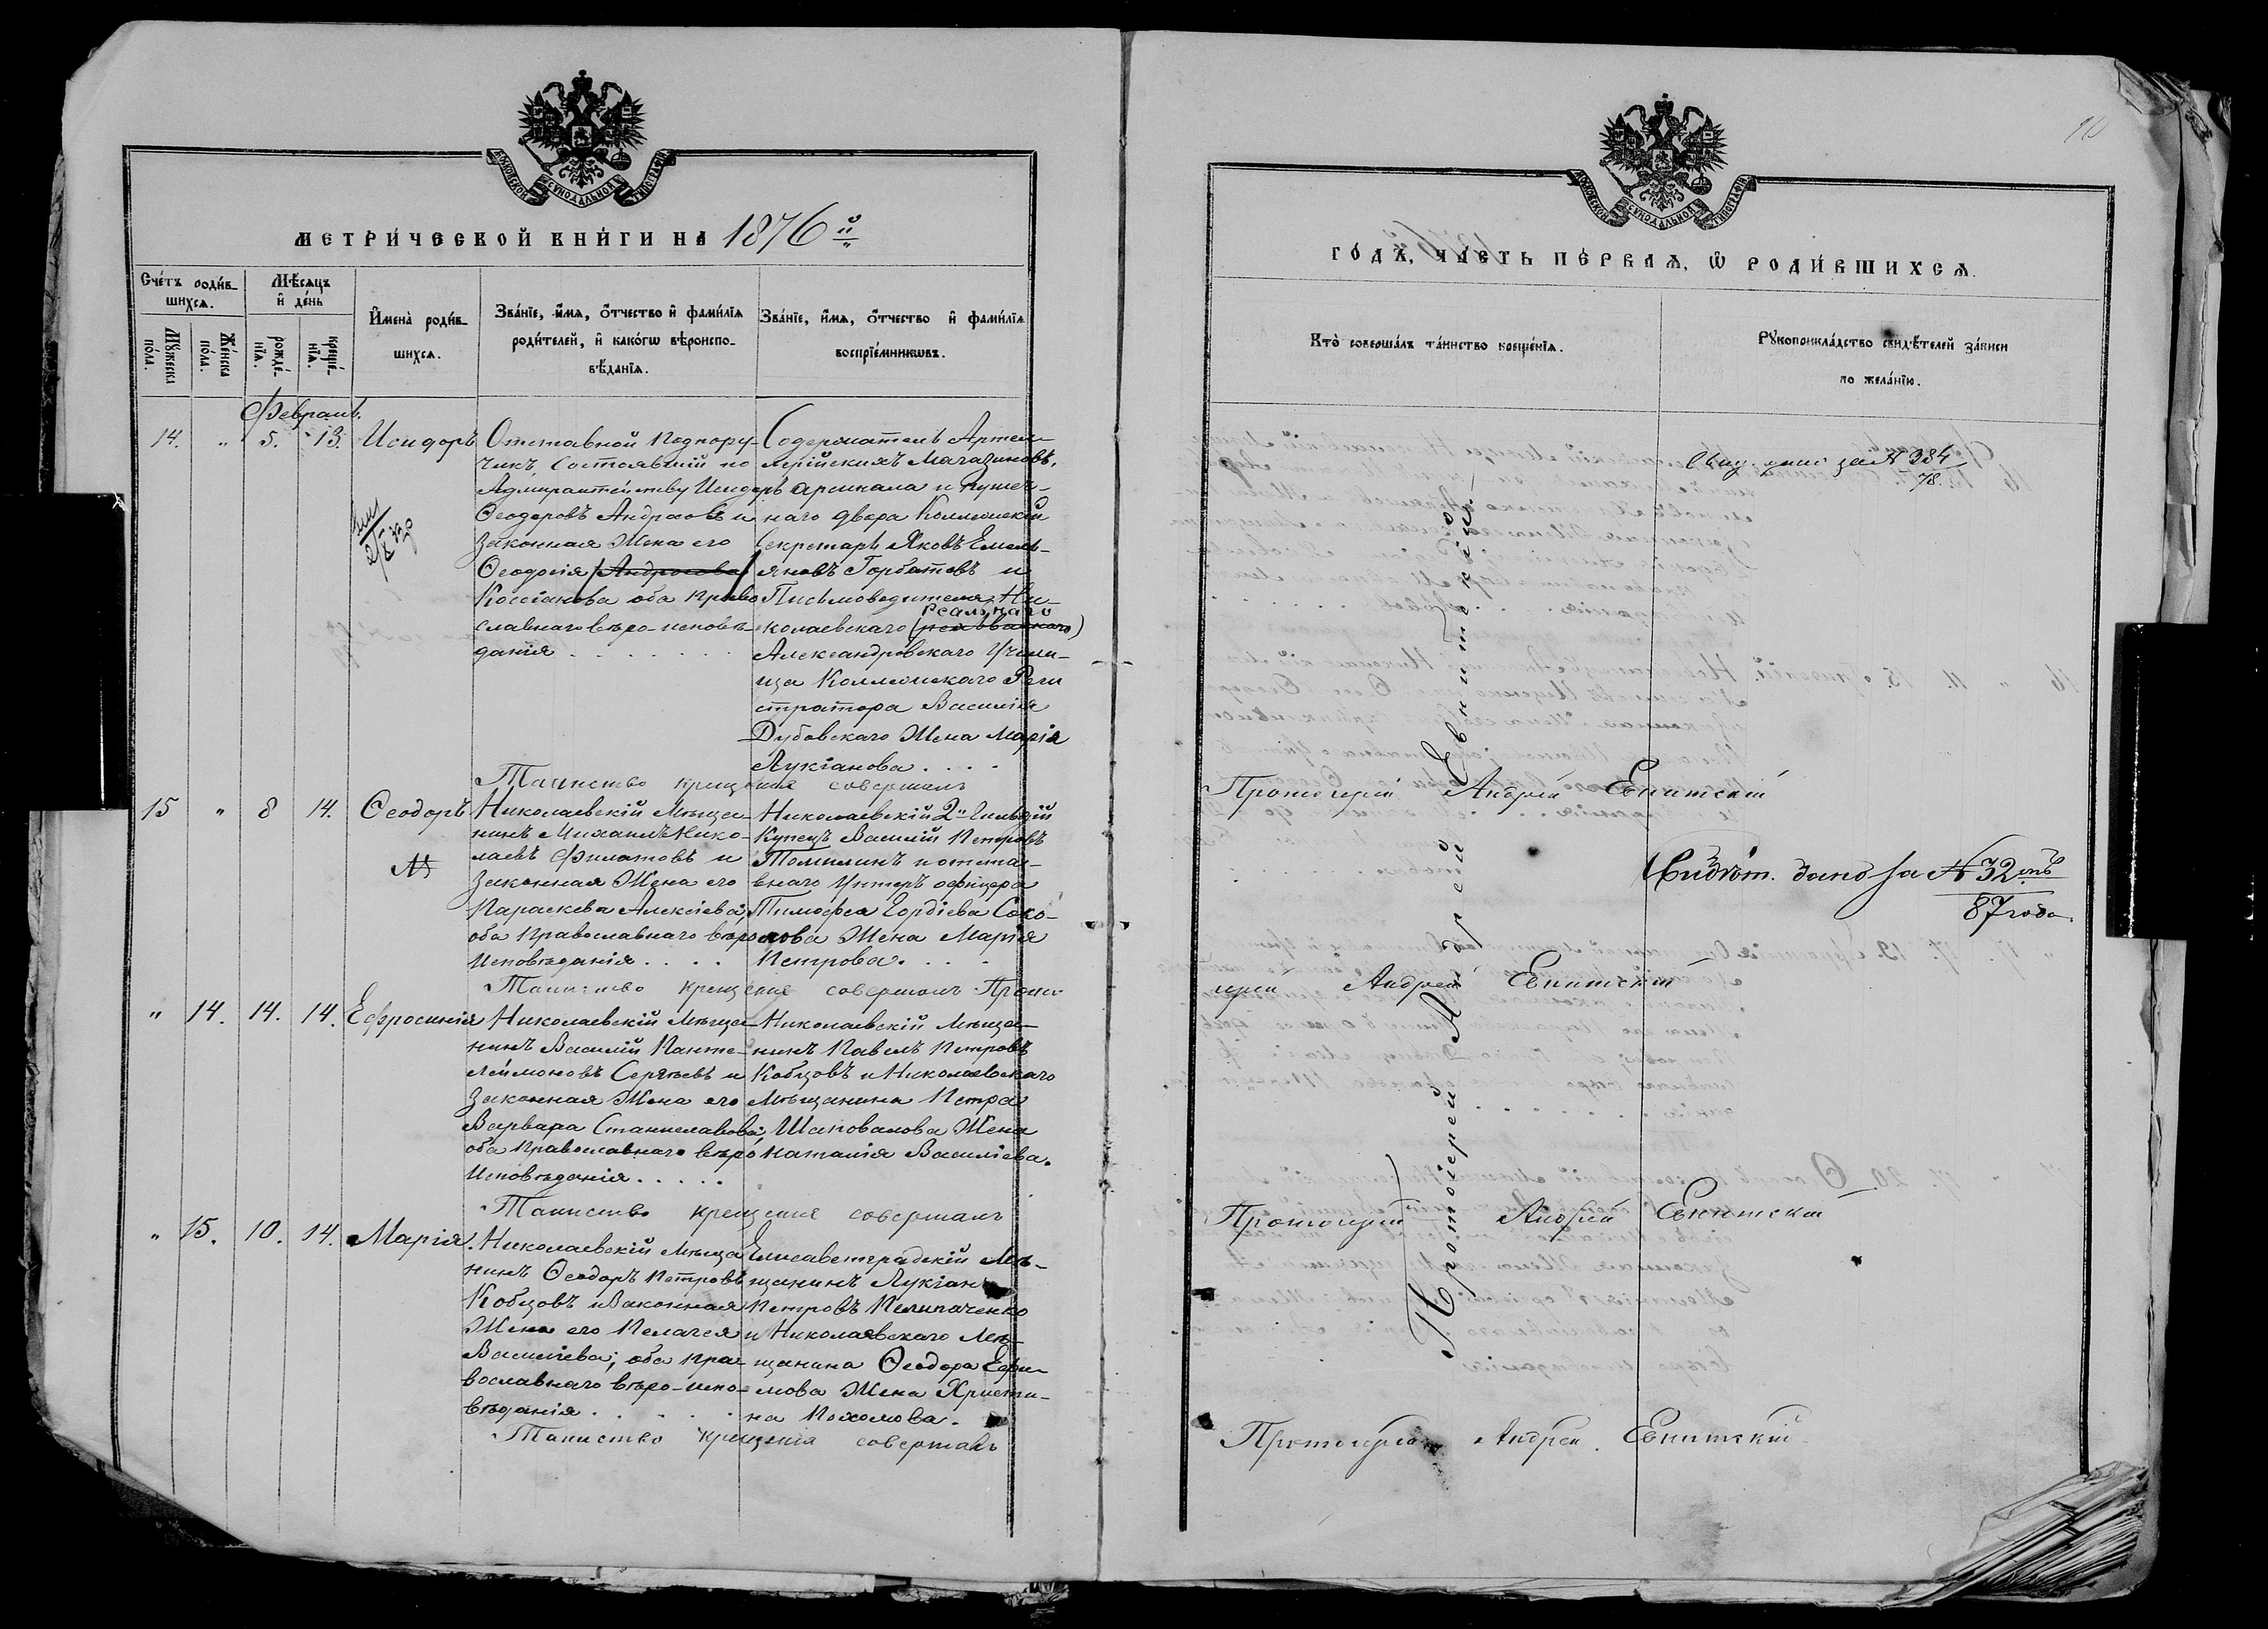 МОСКОВСКОЙ СѴНОДАЛЬНОЙ ТИПОГРАФІИ
МЕТРИ́ЧЕСКОЙ КНИ́ГИ НА 1876й
Сче́тъ роди́в-
шихсѧ.
Мѣ́сѧцъ
и҆ де́нь
Мꙋ́жеска
по́ла.
Же́нска
по́ла.
рожде́-
нїѧ.
креще́-
нїѧ.
И҆мена̀ роди́в-
шихсѧ.
Зва́нїе, и҆́мѧ, ѻ҆́тчество и҆ фами́лїѧ
роди́телей, и҆ како́гѡ вѣроиспо-
вѣ́данїѧ.
Зва́нїе, и҆́мѧ, ѻ҆́тчество и҆ фами́лїѧ
воспрїе́мникѡвъ.
Февраль.
14. " 5. 13. Исидоръ
Отставной Подпору-
чикъ состоявшій по
Адмиралтейству Исидоръ
Ѳеодоровъ и
законная Жена его
Ѳеодосія (Андреева)
Кассіанова оба право
славнаго вѣро-исповѣ-
данія . . . . . .
Содержатель Артил-
лерійскихъ Магазиновъ,
арсенала и пушеч-
наго двора Коллежскій
Секретарь Яковъ Емель-
яновъ Горбатовъ и
Письмоводителя Ни-
реальнаго
колаевскаго
Александровскаго Учили-
ща Коллежскаго Реги
стратора Василія
Дубовскаго Жена Марія
Лукіанова . . . .
Таинство крещенія совершалъ
15 " 8 14. Ѳеодоръ
Николаевскій Мѣща-
нинъ Михаилъ Нико-
лаевъ Филатовъ и
законная Жена его
Параскева Алексіева,
оба православнаго вѣро
исповѣданія . . . .
Николаевскій 2й Гильдіи
Купецъ Василій Петровъ
Томилинъ и отста-
внаго Унтеръ офицера
Тимофея Гордіева Соко-
лова Жена Марія
Петрова. . . .
Таинство крещенія совершалъ Прото-
" 14. 14. 14. Ефросинія
Николаевскій Мѣща-
нинъ Василій Панте-
леймоновъ Сергѣевъ и
законная Жена его
Варвара Станиславова,
оба православнаго вѣро
исповѣданія . . . . .
Николаевскій Мѣща-
нинъ Павелъ Петровъ
Кобцовъ и Николаевскаго
Мѣщанина Петра
Шаповалова Жена
Наталія Василіева.
Таинство крещенія совершалъ
" 15. 10. 14. Марія.
Николаевскій Мѣща
нинъ Ѳеодоръ Петровъ
Кобцовъ и законная
Жена его Пелагея
Василіева; оба пра-
вославнаго вѣро-испо-
вѣданія . . . . .
Елисаветградскій Мѣ-
щанинъ Лукіанъ
Петровъ Пелипаченко
и Николаевскаго Мѣ-
щанина Ѳеодора Ефи-
мова Жена Христи-
на Пахомова.
Таинство крещенія совершалъ
10
МОСКОВСКОЙ СѴНОДАЛЬНОЙ ТИПОГРАФІИ
ГО́ДЪ, ЧА́СТЬ ПЕ́РВАѦ, Ѡ҆ РОДИ́ВШИХСѦ.
Кто̀ соверша́лъ та́инство креще́нїѧ.
Рꙋкоприкла́дство свидѣ́телей за́писи
по жела́нїю.
за № 384
78.
Протоіерей Андрей Евнитскій
Свидѣт. дано за № 32мъ
87 года.
іерей Андрей Евнитскій
Протоіерей Андрей Евнитскій
Протоіерей Андрей Евнитскій
Протоіерей Андрей Евнитскій.